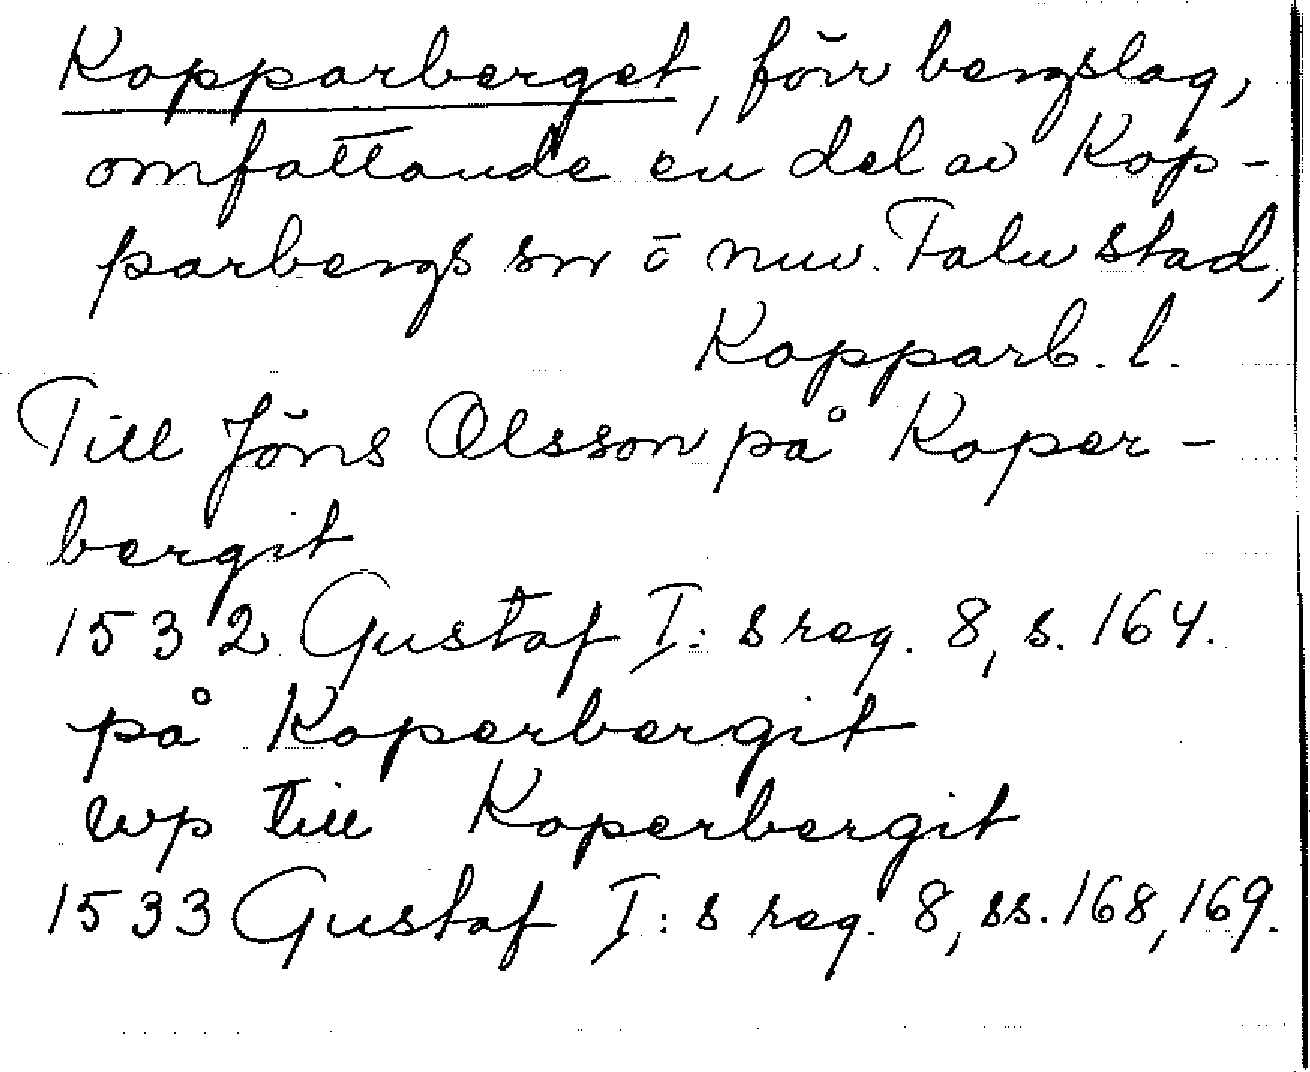 Kopparberget, förr bergslag,
omfattande en del av Kop-
parbergs sn o nuv. Falu stad,
Kopparb. l.
Till Jöns Olsson på Koper-
bergit
1532 Gustaf I:s reg. 8, s. 164.
på Koperbergit
wp till Koperbergit
1533 Gustaf I:s reg. 8, ss. 168, 169.